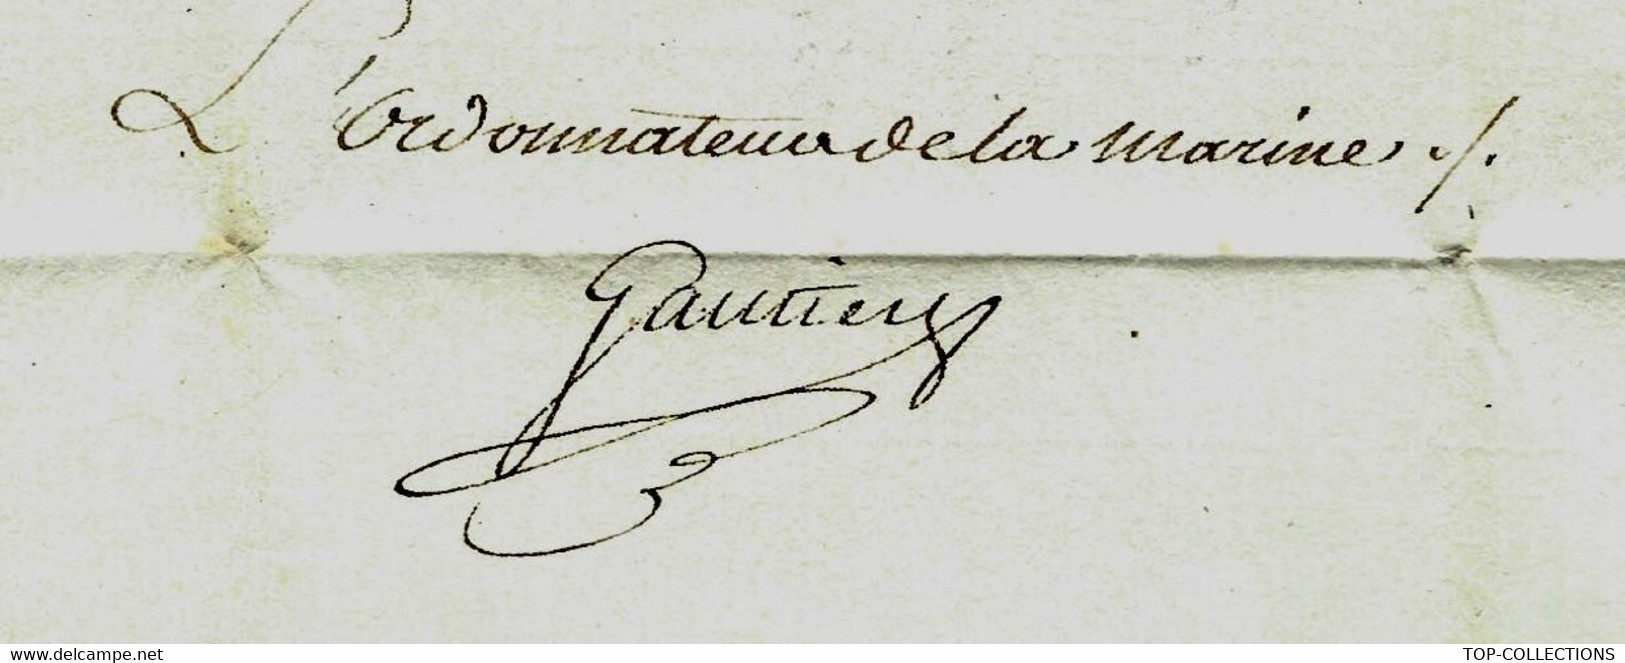 L'ordonnateur de la Marine ./.
Gautier
www.delcampe.net
TOP-COLLECTIONS